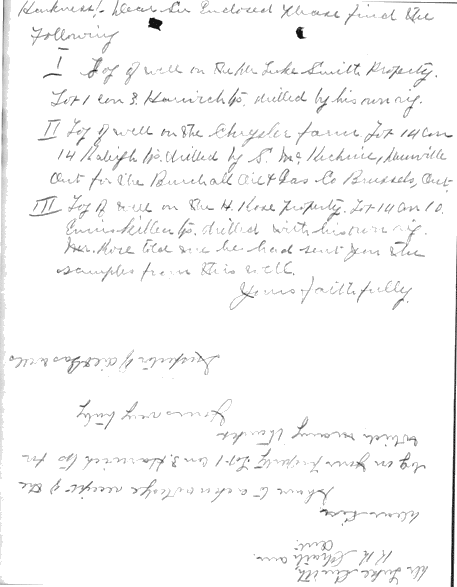 Harkness/- Dear Sir Enclosed please find the
Following
I Log of well on the Mr Luke Smith Property.
Lot 1 Con 3. Harwich Tp. drilled by his own rig.
II Log of well on the Chrysler farm Lot 14 Con
14 Raleigh Tp. drilled by S. Mc
Ont for the Burchall Oil & Gas Co Brussels, Ont.
III Log of well on the H. Rose Property. Lot 14 Con 10.
Enniskillen Tp. drilled with his own rig.
Mr. Rose told me he had sent you the
samples from this well.
Yours faithfully.
Mr. Luke Smith
R R Chatham
Ont.
Dear Sir
I have to acknowledge receipt of the
log on your property Lot 1 Con 3. Harwich Tp for
which many thanks
Yours very truly
Inspector of Oil & Gas wells